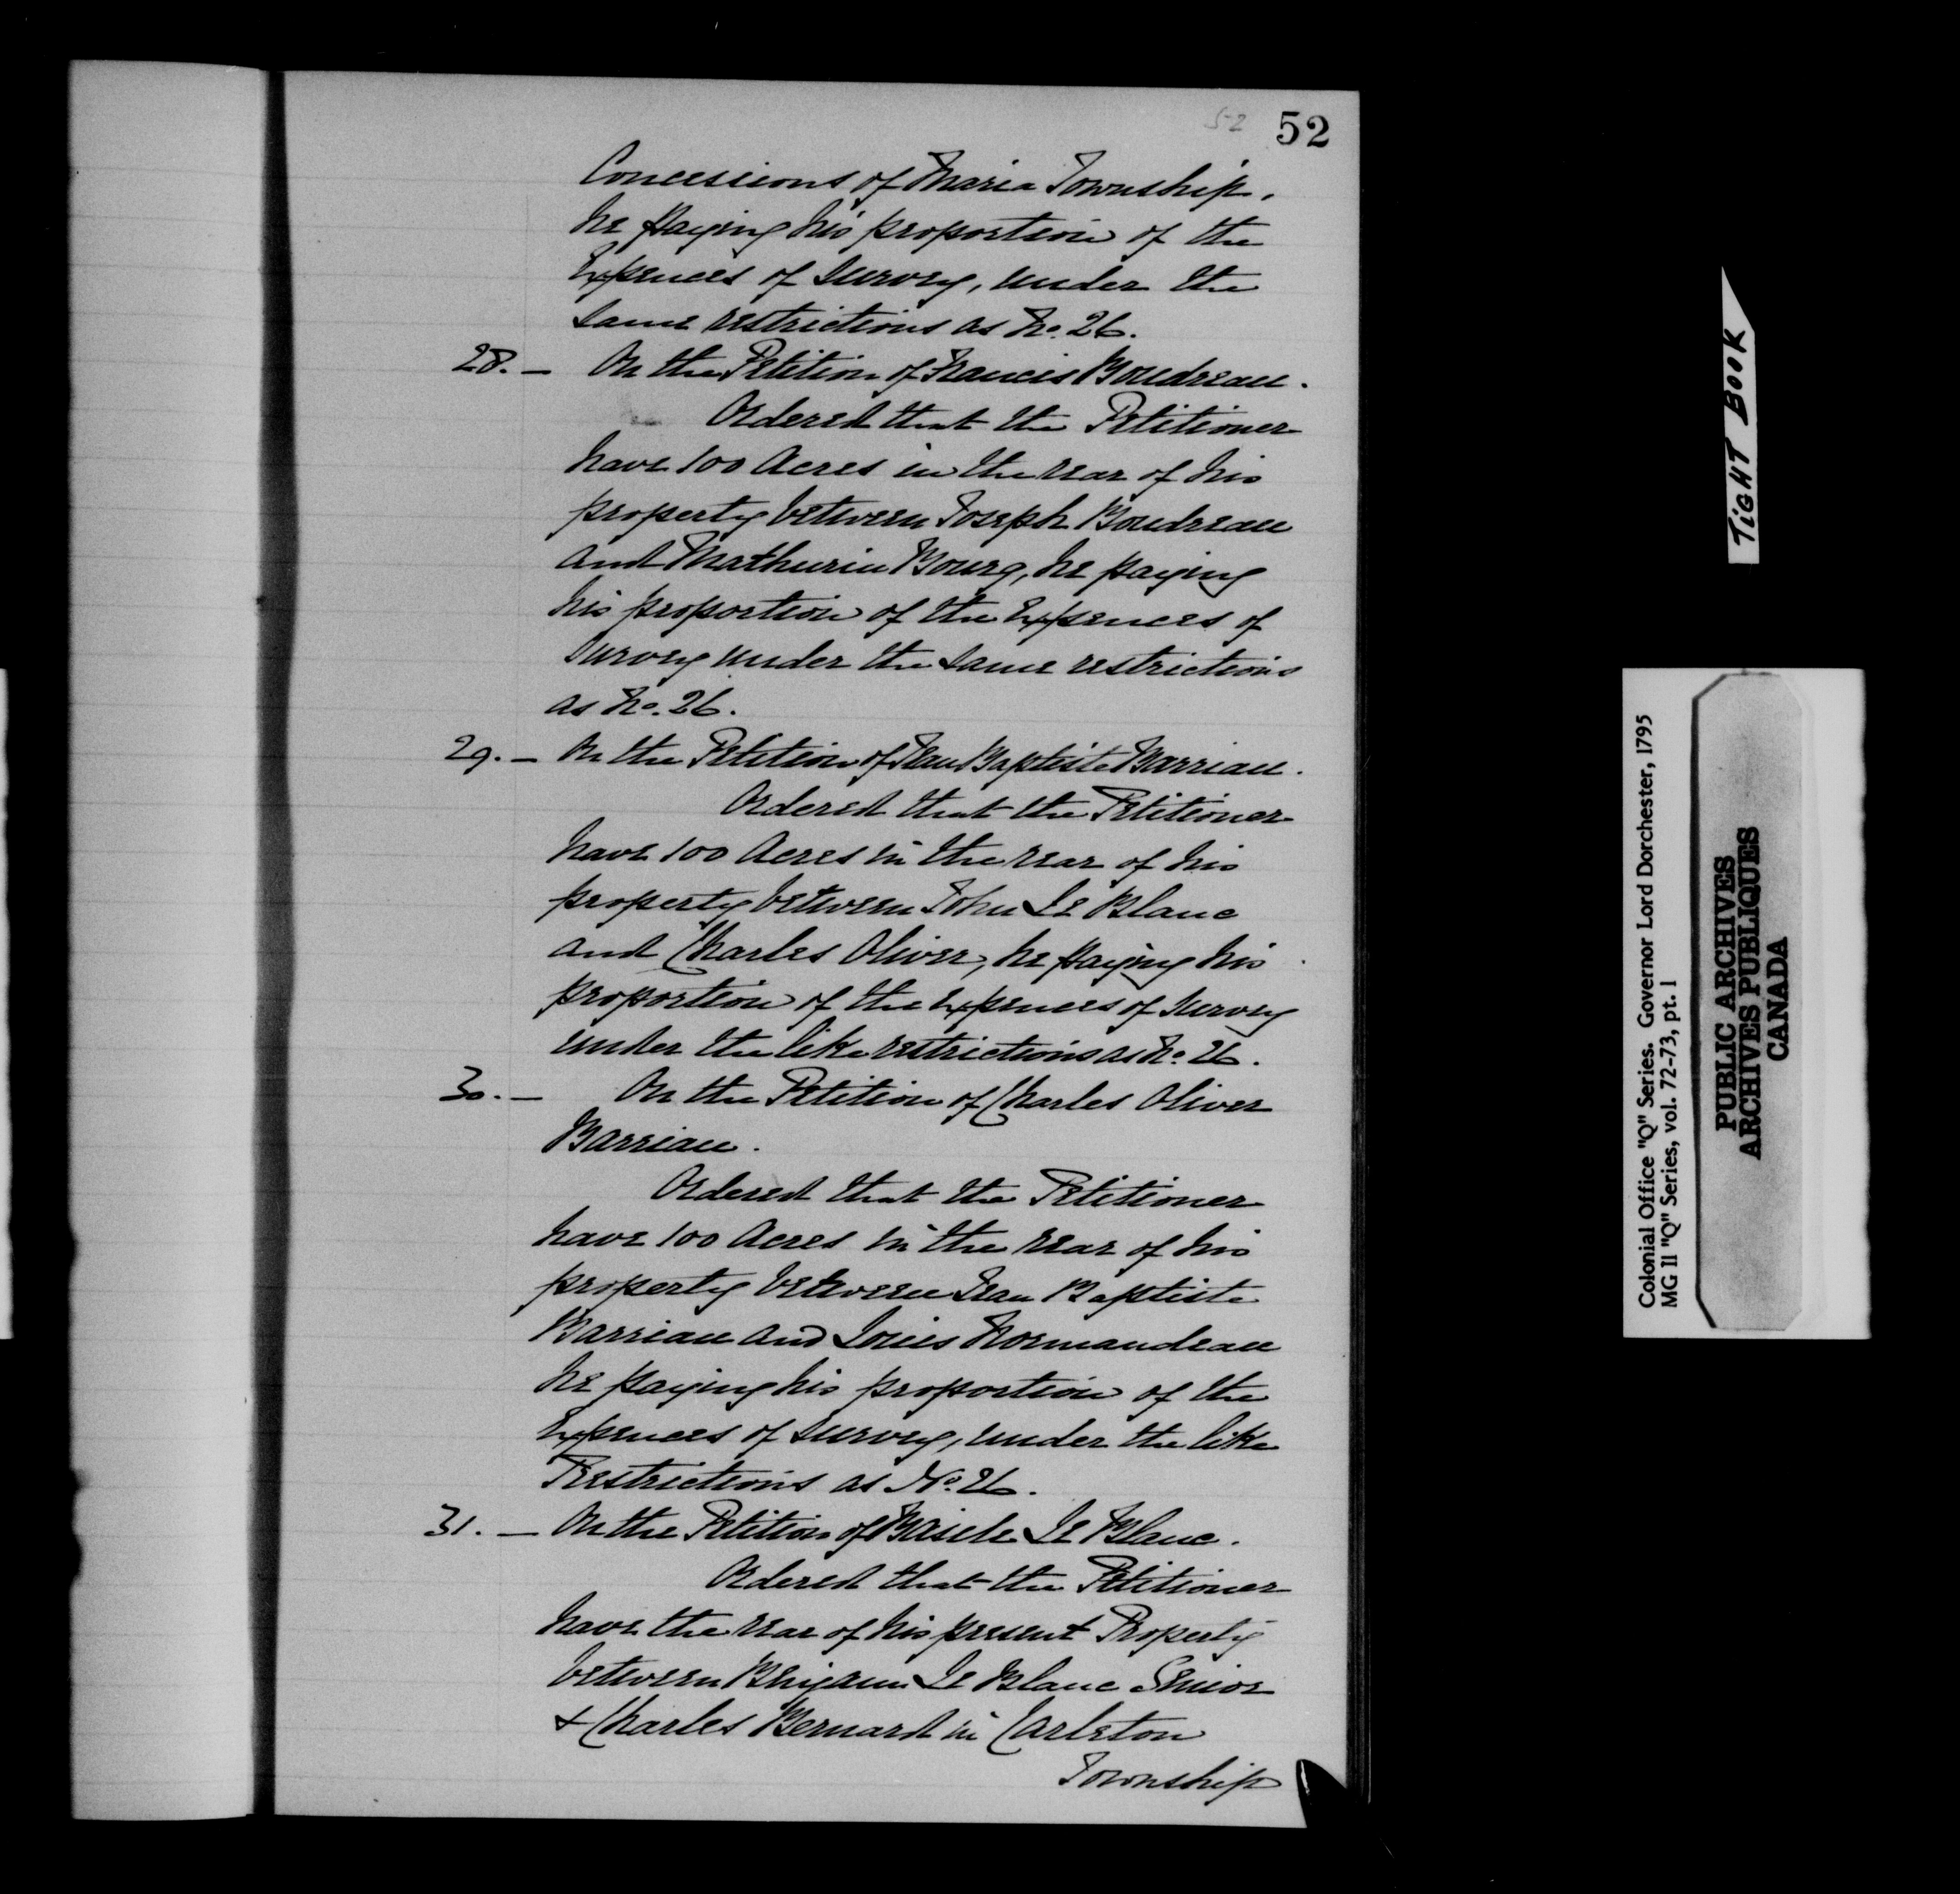 52 52
Concessions of Maria Township,
he paying his proportion of the
Expences of Survey, under the
same restrictions as No. 26.
28. — On the Petition of Francis Boudreau.
Ordered that the Petitioner
have 100 Acres in the rear of his
property between Joseph Boudreau
and Mathurin Bourg, he paying
his proportion of the Expences of
Survey under the same restrictions
as No. 26.
29. — On the Petition of Jean Baptiste Barriau.
Ordered that the Petitioner
have 100 Acres in the rear of his
property between John Le Blanc
and Charles Oliver, he paying his
proportion of the Expences of Survey
under the like restrictions as No. 26.
30. — On the Petition of Charles Oliver
Barriau.
Ordered that the Petitioner
have 100 Acres in the rear of his
property between Jean Baptiste
Barriau and Louis Normandeau
he paying his proportion of the
Expences of Survey, under the like
Restrictions as No. 26.
31. — On the Petition of Basile Le Blanc.
Ordered that the Petitioner
have the rear of his present Property
between Benjamin Le Blanc Senior
& Charles Bernard in Carleton
Township
TIGHT BOOK
Colonial Office "Q" Series. Governor Lord Dorchester, 1795
MG 11 "Q" Series, vol. 72-73, pt. 1
PUBLIC ARCHIVES
ARCHIVES PUBLIQUES
CANADA